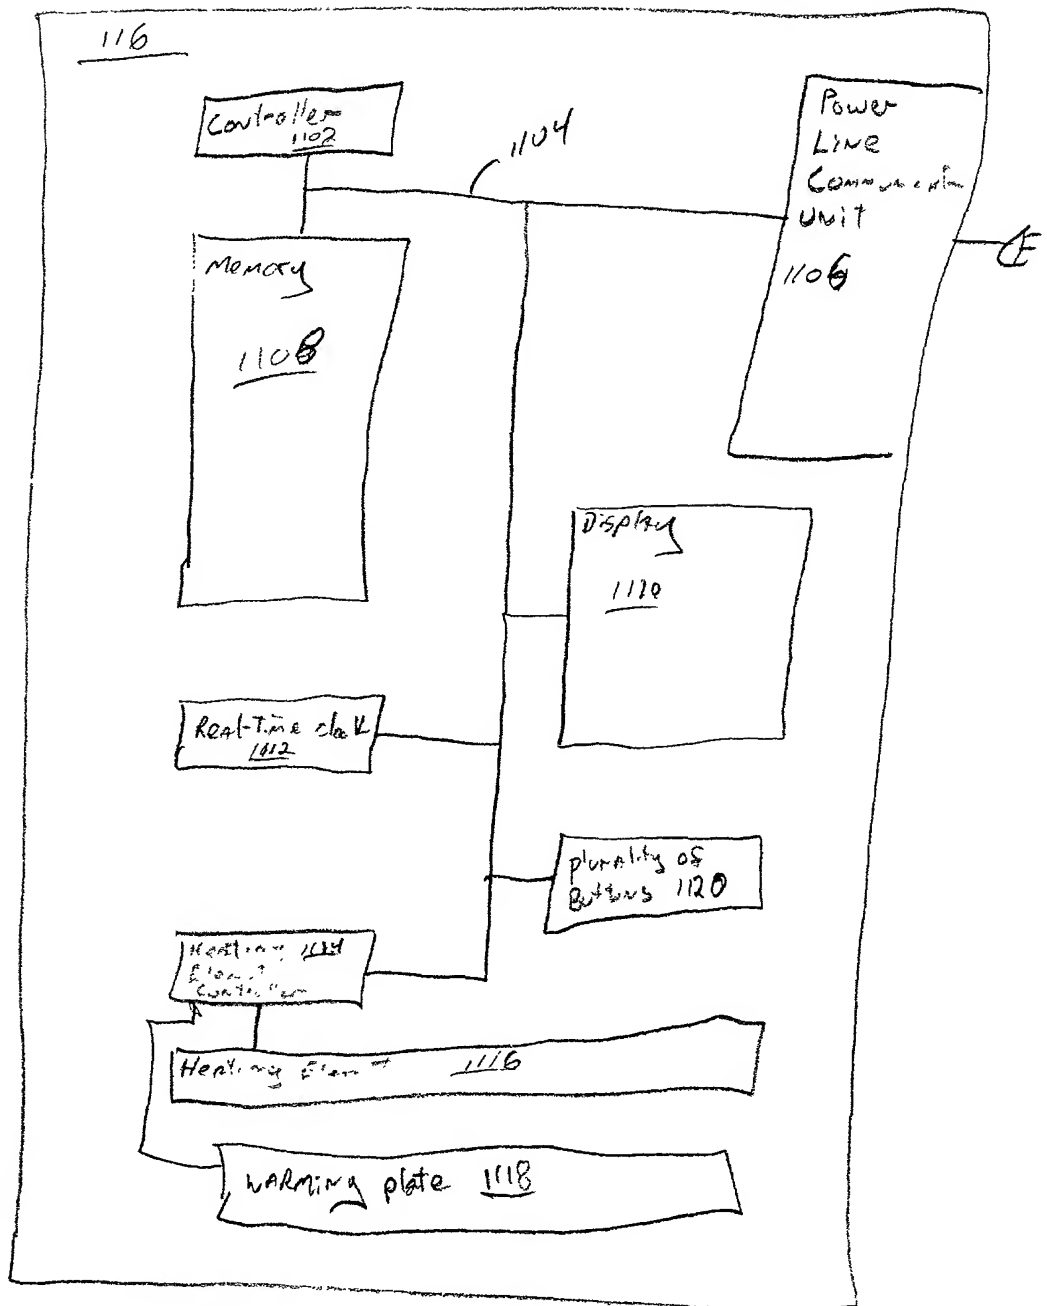 116
Controller
1102
1104
Power
Line
Communication
Unit
1106
Memory
1108
Display
1110
Real-Time clock
1112
plurality of
Buttons 1120
Heating 1114
Element
Controller
Heating Element 1116
WARMING plate 1118